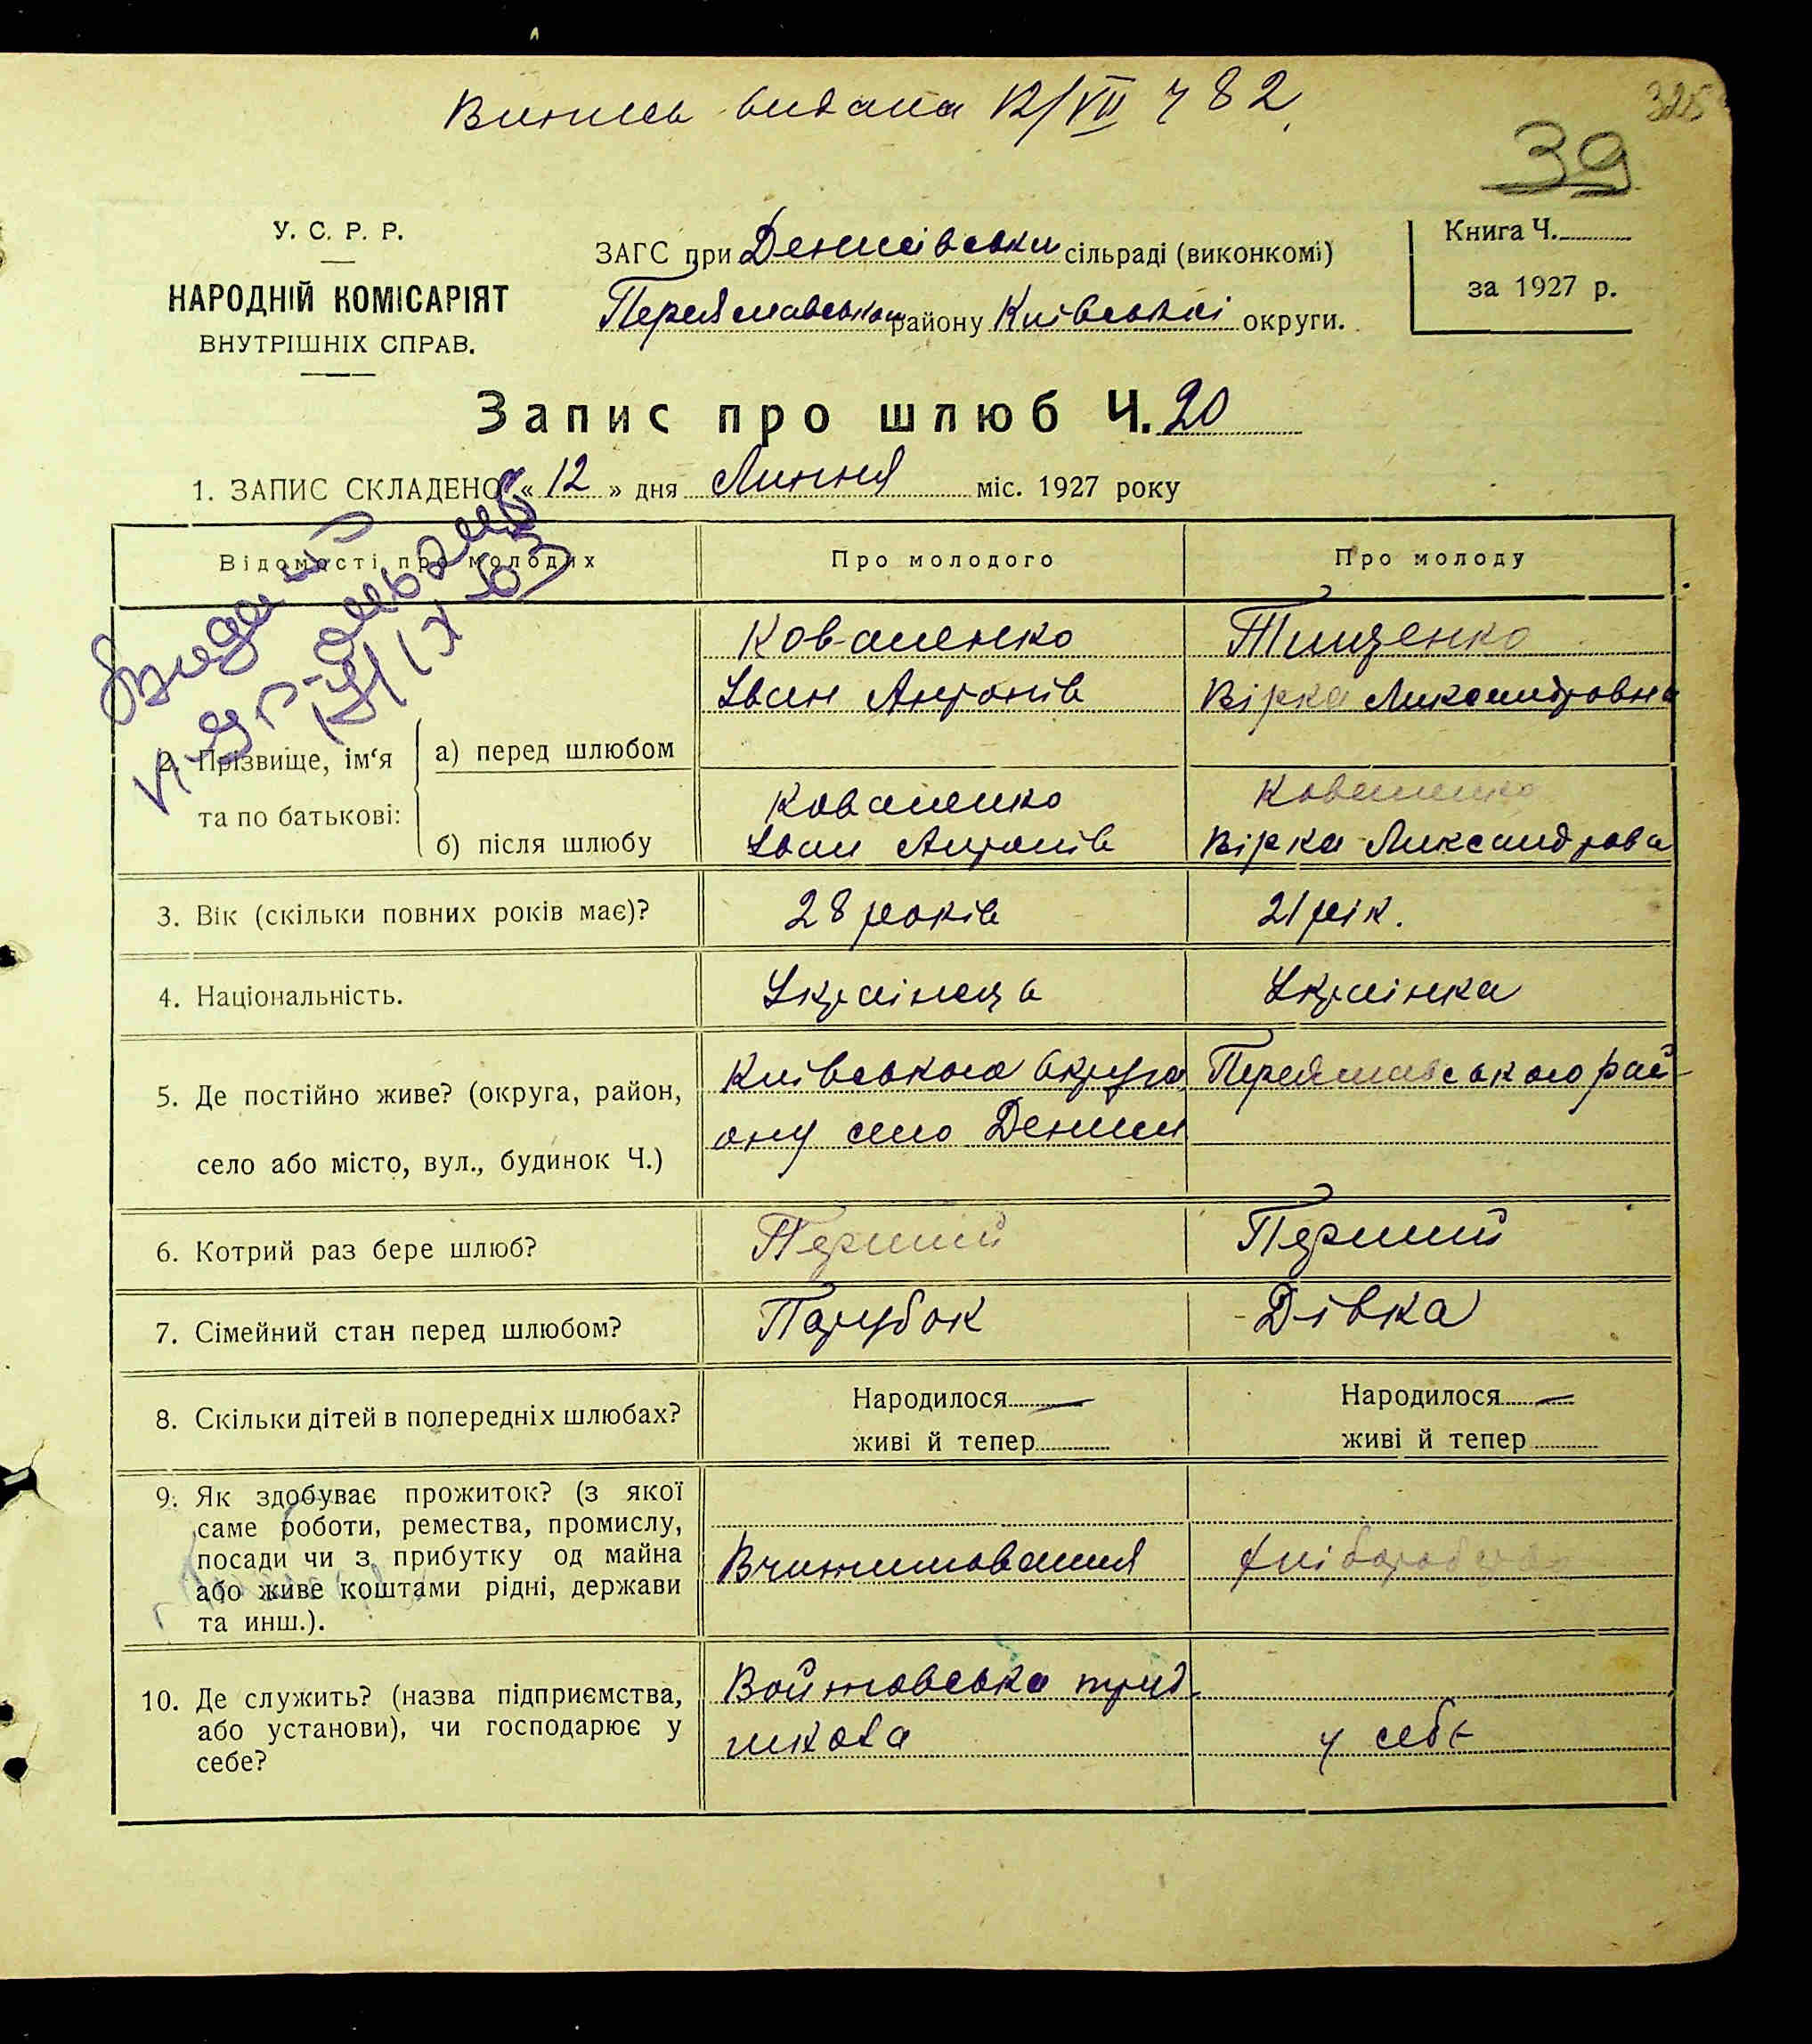 325
Випись видана 12/VII Ч 82
39
У. С. Р. Р.
НАРОДНІЙ КОМІСАРІЯТ
ВНУТРІШНІХ СПРАВ.
ЗАГС при Денисівськи сільраді (виконкомі)
Переяславського району Київської округи.
Книга Ч.
за 1927 р.
Запис про шлюб Ч. 20
1. ЗАПИС СКЛАДЕНО « 12 » дня Липня міс. 1927 року
Відомості про молодих
Про молодого
Про молоду
2. Прізвище, ім‘я та по батькові:
а) перед шлюбом
Коваленко
Іван Антонів
Тищенко
Вірка Лександровна
б) після шлюбу
Коваленко
Іван Антонів
Коваленко
Вірка Лександрова
3. Вік (скільки повних років має)?
28 років
21 рік.
4. Національність.
Українець
Українка
5. Де постійно живе? (округа, район,
село або місто, вул., будинок Ч.)
Київського округа Переяславського рай-
ону село Дениси
6. Котрий раз бере шлюб?
Перший
Перший
7. Сімейний стан перед шлюбом?
Парубок
Дівка
8. Скільки дітей в попередніх шлюбах?
Народилося —
живі й тепер
Народилося —
живі й тепер
9. Як здобуває прожиток? (з якої
саме роботи, ремества, промислу,
посади чи з прибутку од майна
або живе коштами рідні, держави
та инш.).
Вчителювання
10. Де служить? (назва підприємства,
або установи), чи господарює у
себе?
Войтовська труд.
школа
у себе